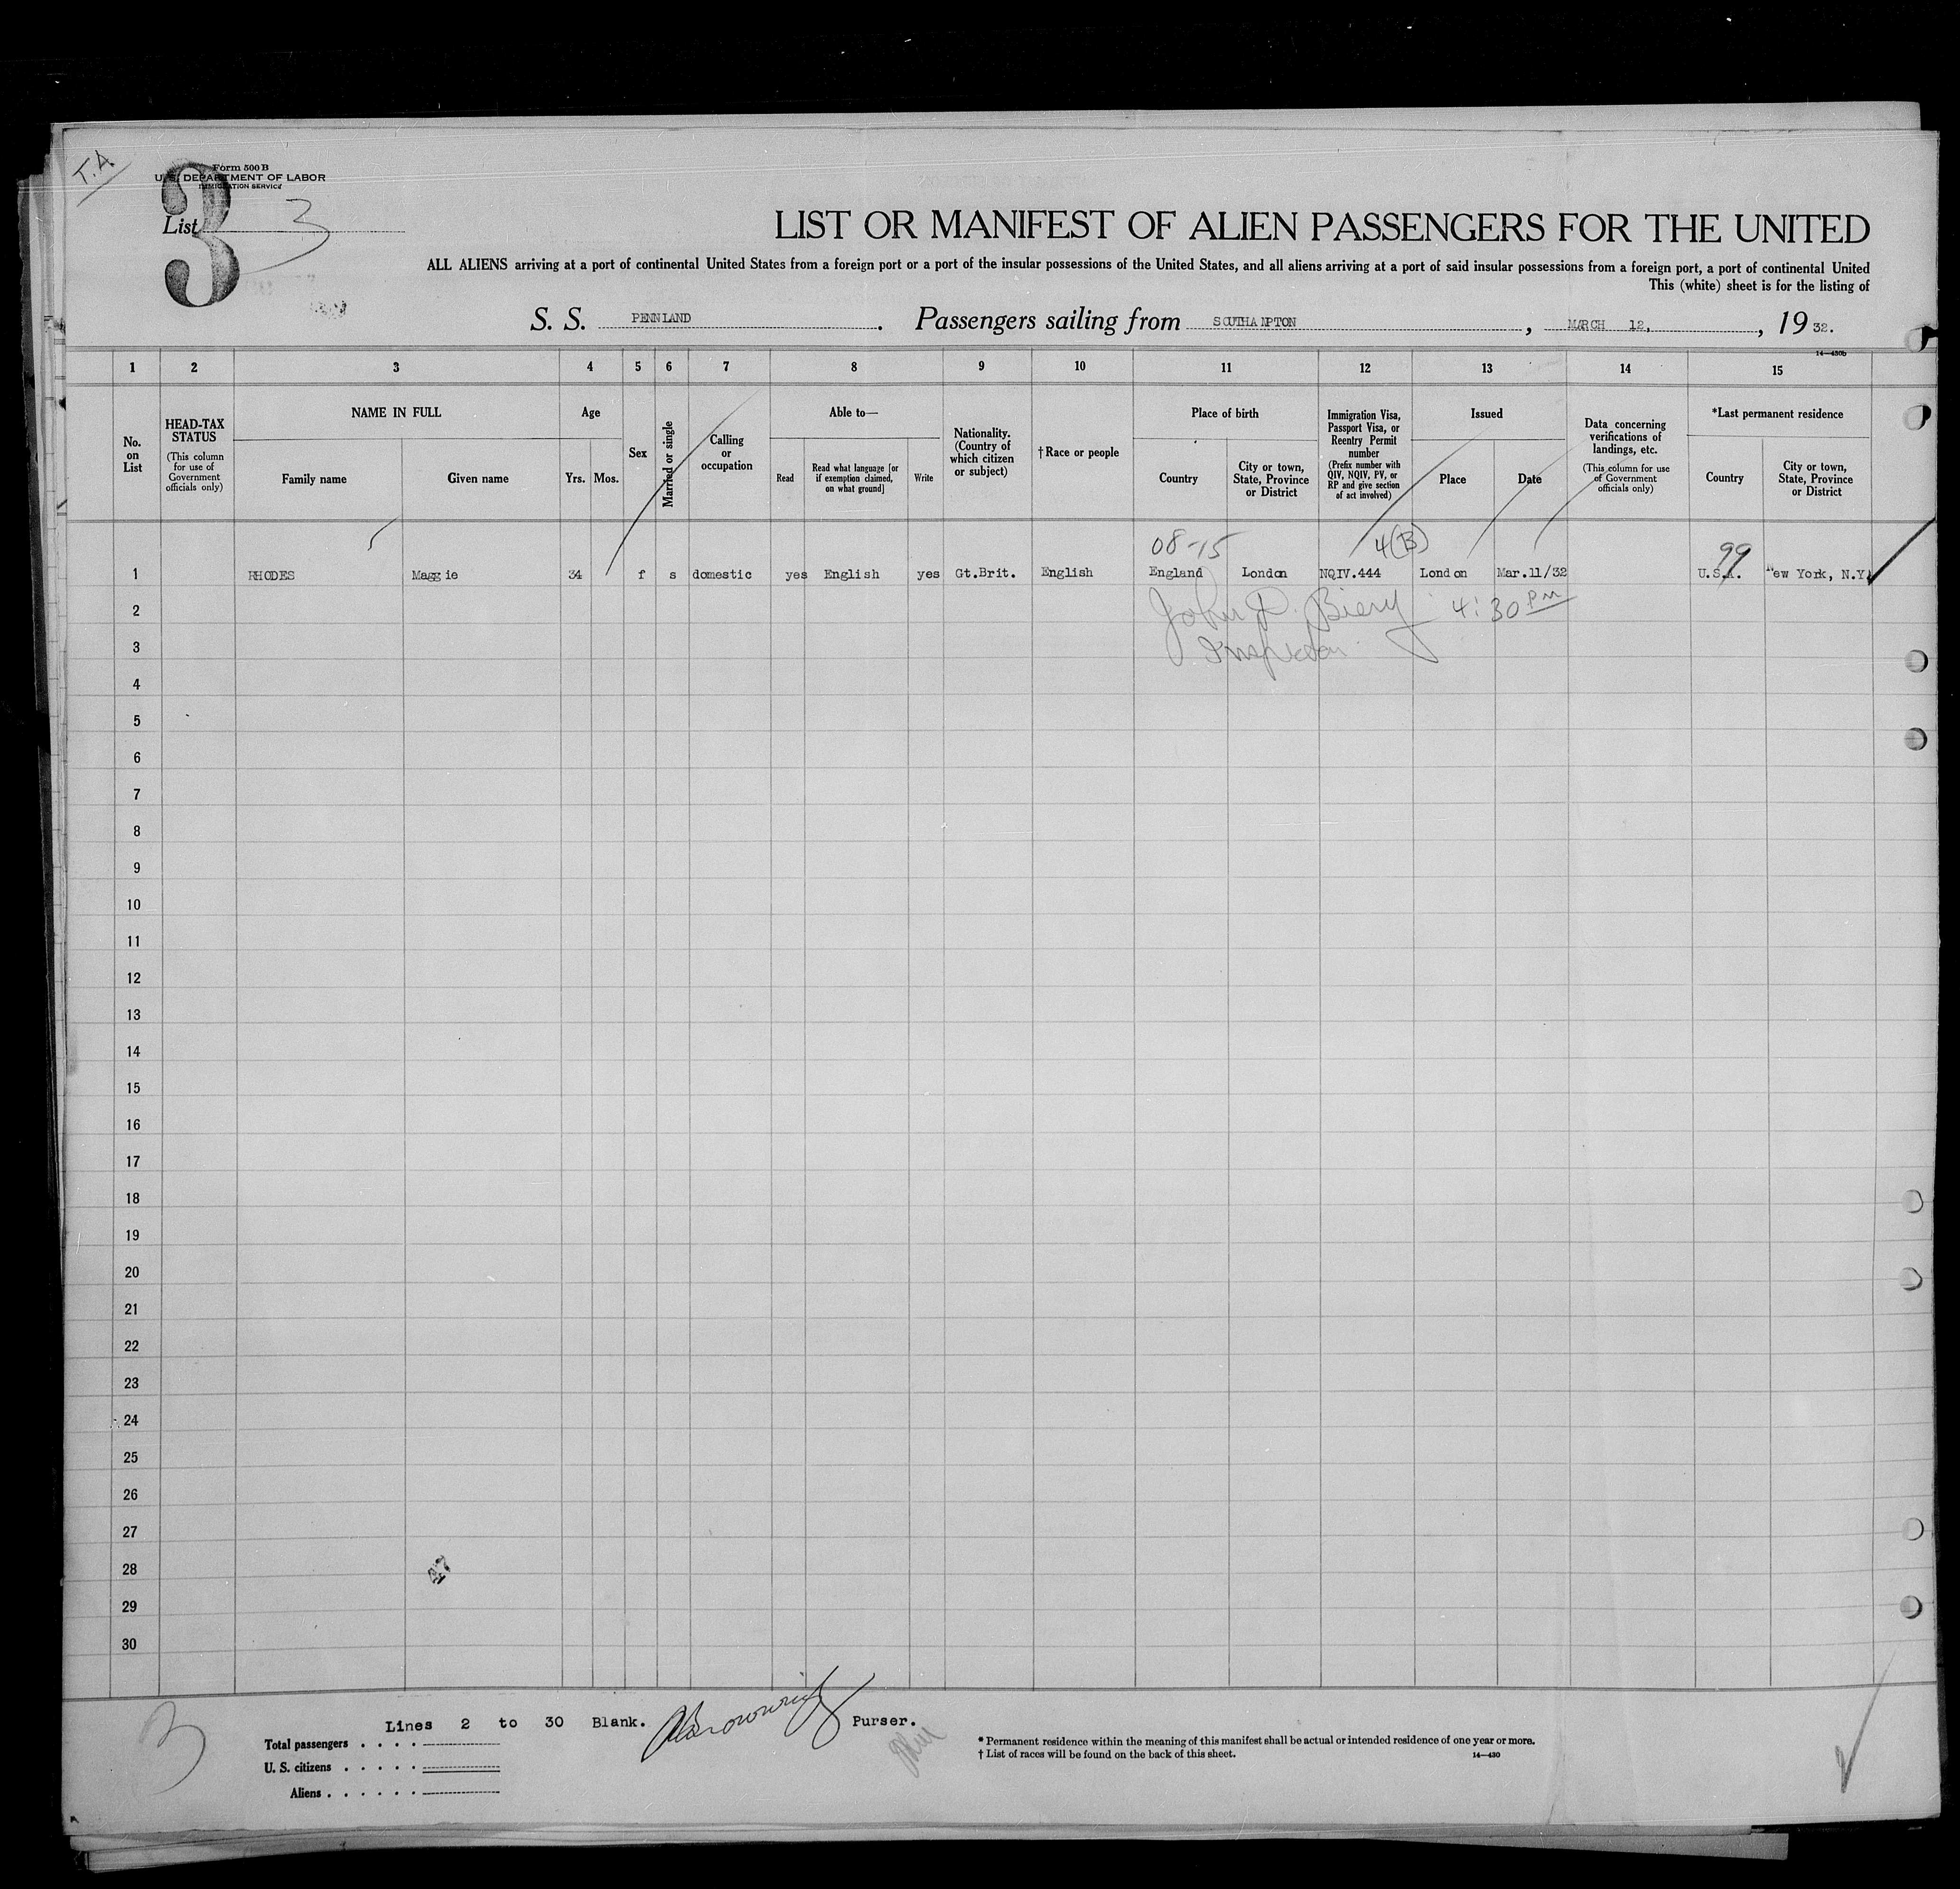 T.A
Form 500 B
U. S. DEPARTMENT OF LABOR
IMMIGRATION SERVICE
3
List 3
LIST OR MANIFEST OF ALIEN PASSENGERS FOR THE UNITED
ALL ALIENS arriving at a port of continental United States from a foreign port or a port of the insular possessions of the United States, and all aliens arriving at a port of said insular possessions from a foreign port, a port of continental United
This (white) sheet is for the listing of
S. S. PENNLAND. Passengers sailing from SOUTHAMPTON, MARCH 12, 1932.
14—430b
1 2 3 4 5 6 7 8 9 10 11 12 13 14 15
No. on List
HEAD-TAX STATUS
(This column for use of Government officials only)
NAME IN FULL
Family name Given name
Age
Yrs. Mos.
Sex
Married or single
Calling or occupation
Able to—
Read
Read what language [or if exemption claimed, on what ground]
Write
Nationality. (Country of which citizen or subject)
†Race or people
Place of birth
Country
City or town, State, Province or District
Immigration Visa, Passport Visa, or Reentry Permit number
(Prefix number with QIV, NQIV, PV, or RP and give section of act involved)
Issued
Place Date
Data concerning verifications of landings, etc.
(This column for use of Government officials only)
*Last permanent residence
Country
City or town, State, Province or District
08-15 4(B) 99
1 RHODES Maggie 34 f s domestic yes English yes Gt.Brit. English England London NQIV.444 London Mar.11/32 U.S.A. New York, N.Y.
2 John D. Biery 4:30 PM
3 Inspector
4
5
6
7
8
9
10
11
12
13
14
15
16
17
18
19
20
21
22
23
24
25
26
27
28
29
30
3
Lines 2 to 30 Blank. Purser.
Total passengers . . . .
U. S. citizens . . . . .
Aliens . . . . . .
* Permanent residence within the meaning of this manifest shall be actual or intended residence of one year or more.
† List of races will be found on the back of this sheet.
14—430